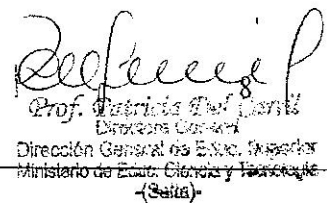 8
Prof. Patricia Del
Directora General
Dirección General de Educ. Superior
Ministerio de Educ. Ciencia y Tecnología
-(Salta)-